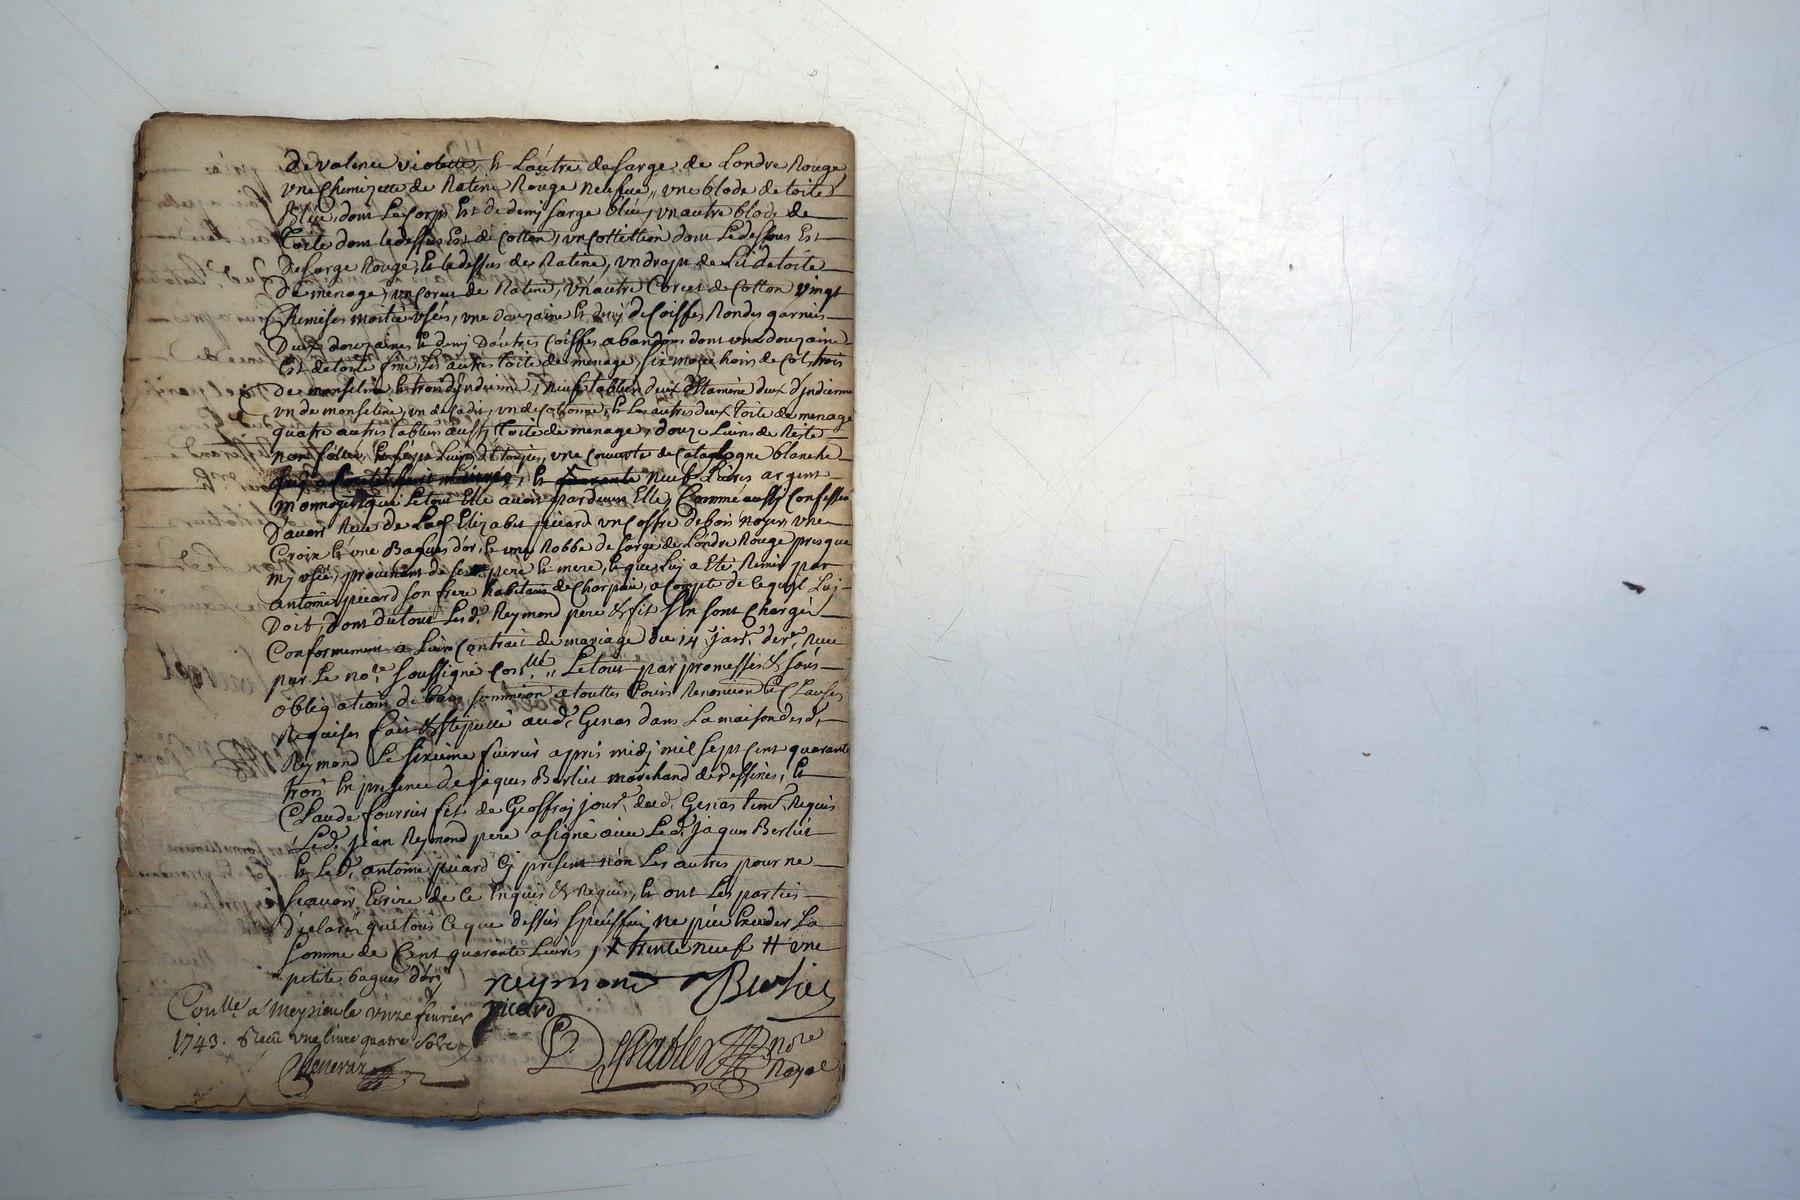 de valence violette, & Lautre de sarge de Londre Rouge
une chemizette de Ratine Rouge neufve, une blode de toile
bleu, dont Le corps Est de demj sarge bleu, un autre blode de
toile dont le dessus Est de Cotton, un Cottillion dont Le dessous Est
De sarge Rouge, & le dessus de Ratine, un drapt de Lit de toile
De menage, un Corcet de Ratine, un autre Corcet de Cotton vingt
Chemises moitié usés, une douzaine & demj de Coiffes Rondes garnies
Deux douzaines & demj D'autres Coiffes abandons dont une douzaine
Est de toile fine, Les autres toile de menage six mouchoirs de Col, trois
De monseline, & trois d'jndienne, neuf tabliers deux d'Etamine deux d'jndienne
un de monseline, un de Cadis, un de Cotonne, & Les autres deux toile de menage
quatre autres tabliers aussj toile de menage, douze Livres de Rite
non fillée, & seize Livres d'Etoupes, une Couverte de Catalogne blanche
& quarante neuf Livres argent
monnoyé, qui Le tout Elle avoit pardevers Elle, Comme aussj Confesse
D'avoir Receu de Lad. Elizabet picard un Coffre de bois noyer, une
Croix & une Bague d'or, & une Robbe de sarge de Londre Rouge presque
mj usée, provenant de ses pere & mere, & que Luj a Eté Remis par
antoine picard son frere habitant de Charpieu, a Compte de ce quil Luj
Doit, dont du tout Lesd. Reymond pere & fils s'en sont Chargés
Conformement a Leur Contrait de mariage du 14 janr. derr. Receu
par Le nore. soussigné Conllé, Le tout par promesses & sous
obligations de biens soumission a touttes Cours Renonciation & Clauses
Requises fait & stipullé aud. Genas dans La maison desd.
Reymond Le sixieme fuvrier apres midj mil sept Cent quarante
trois En presence de jaques Berliet marchand de dessines, &
Claude fournier fils de Geoffraj jour. dud. Genas tem. Requis
Led. jean Reymond pere a signé avec Led. jaques Berliet
& Led. antoine picard Cj present non Les autres pour ne
scavoir Ecrire de ce Enquis & Requis, & ont Les parties
declaré que tous Ce que dessus speciffié ne peut Exceder La
somme de Cent quarante Livres, X trente neuf ++ une
petite bague d'or,
reymond Berliet
picard
Conllé a Meyzieu le unze fevrier
1743. Reçu une livre quatre sols
nore
Royal